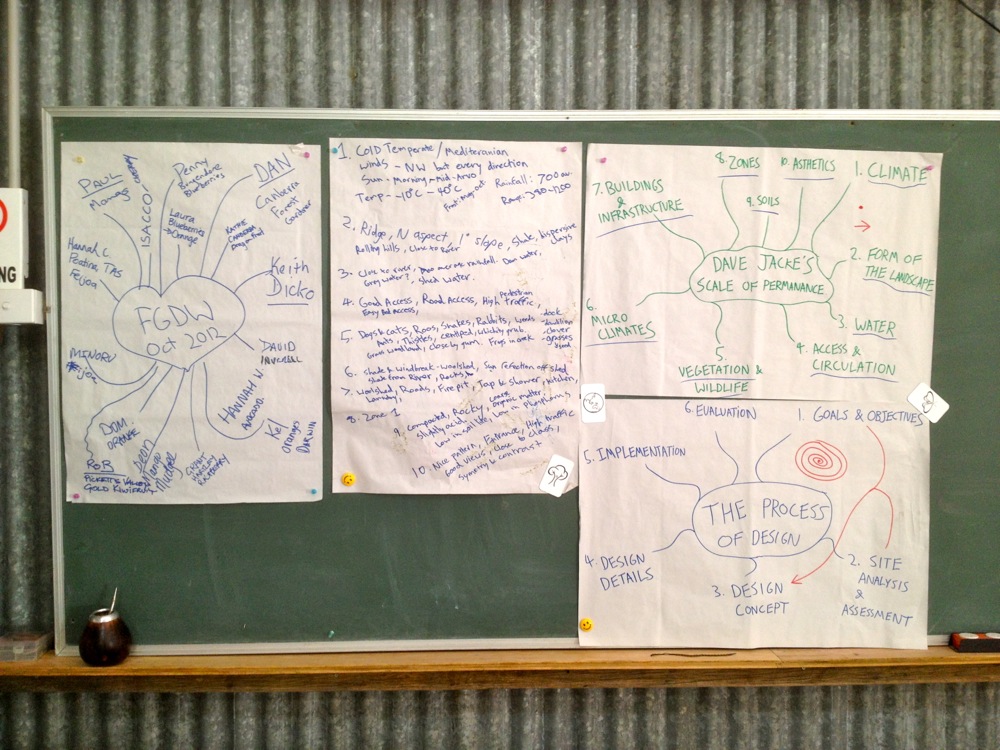 NG
PAUL
Mamas
ISACCO!
Penny
Blueberries
DAN
Canberra
Forest
Gardner
Laura
Blueberries
Orange
Hannah C.
TAS
Feijoa
Keith
Dicko
FGDW
Oct 2012
DAVID
MINORU
HANNAH N.
DOM.
ORANGE
ROB
GOLD
Mudgee
Kel
Orange
DARWIN
1. COLD Temperate / Mediteranian
winds - NW but every direction
Sun - Morning - Mid-Arvo
Temp - -10°C - 40°C
Rainfall: 700 av.
2. Ridge, N aspect, 1° slope, Shale, dispersive
clays
Rolling hills, Close to River
3. Close to river, Dam water,
Grey water?, Shed water.
4. Good Access, Road Access, High pedestrian traffic,
access,
5. Dogs & cats, Roos, Snakes, Rabbits, weeds - dock
- dandilion
Ants, Thistles, centiped,
- clover
Grass woodland, close by gum. Frogs in creek
- grasses
6. Shade & Windbreak - woolshed, Sun reflection off shed
River, Rocks,
7. Woolshed, Roads, Fire pit, Tap to shower, kitchen,
Laundry,
8. Zone 1
9. compacted, Rocky,
slightly acidic, organic matter,
Low in soil life, Low in Phosphorus
10. Nice pattern, Entrance, High traffic
Good views, close to class,
symetry & contrast
8. ZONES
10. ASTHETICS
1. CLIMATE
7. BUILDINGS
&
INFRASTRUCTURE
9. SOILS
DAVE JACKE'S
SCALE OF PERMANANCE
2. FORM OF
THE LANDSCAPE
6.
MICRO
CLIMATES
3. WATER
5.
VEGETATION &
WILDLIFE
4. ACCESS &
CIRCULATION
6. EVALUATION
1. GOALS & OBJECTIVES
5. IMPLEMENTATION
THE PROCESS
OF DESIGN
4. DESIGN
DETAILS
3. DESIGN
CONCEPT
2. SITE
ANALYSIS
&
ASSESSMENT